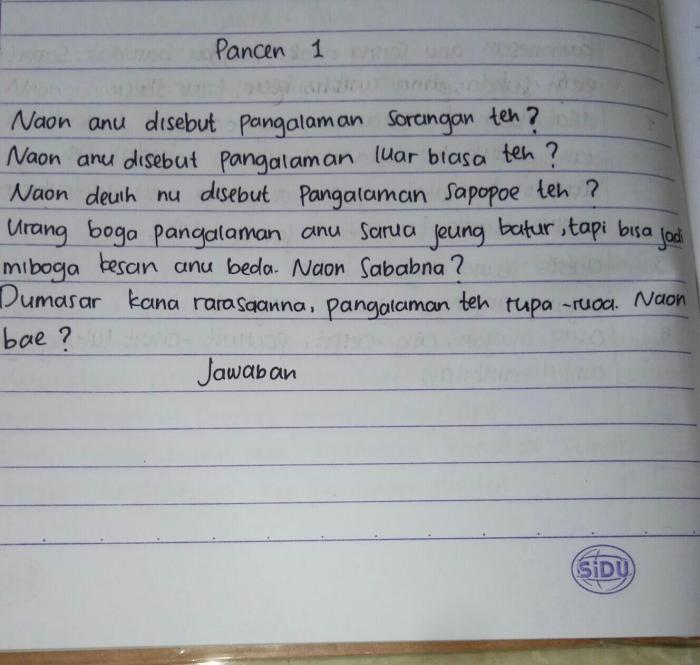 Pancen 1
Naon anu disebut pangalaman sorangan teh?
Naon anu disebut pangalaman luar biasa teh?
Naon deuih nu disebut pangalaman sapopoe teh?
Urang boga pangalaman anu sarua jeung batur, tapi bisa jadi
miboga kesan anu beda. Naon Sababna?
Dumasar kana rarasaanna, pangalaman teh rupa-rupa. Naon
bae?
Jawaban
SiDU